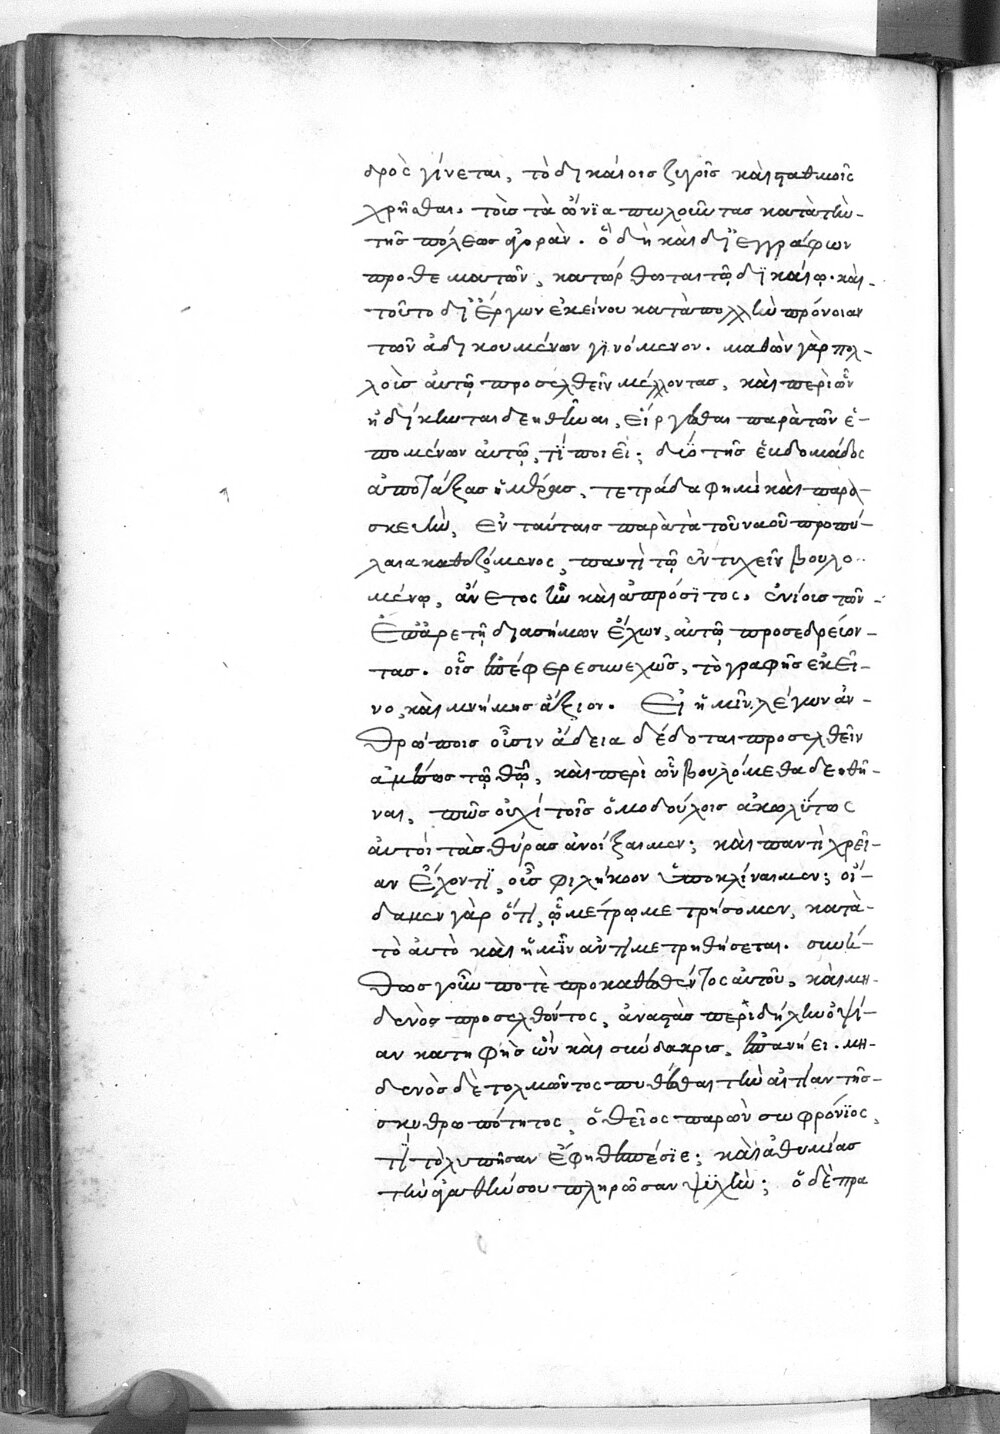 δρὸς γίνεται, τὸ δικαίοις ζυγοῖς καὶ σταθμοῖς
χρῆσθαι, τοῖς τὰ ὤνϊα πωλοῦντας κατὰ τὴν
τῆς πόλεως ἀγορὰν. ὃ δὴ καὶ δι' ἐγγράφων
προθεματῶν, κατώρθωται τῷ δϊκαίῳ. καὶ
τοῦτο δι' ἔργων ἐκείνου κατὰ πολλὴν πρόνοιαν
τῶν ἀδικουμένων γϊνόμενον. μαθὼν γὰρ πολ-
λοὺς αὐτῷ προσελθεῖν μέλλοντας, καὶ περὶ ὧν
ἠδίκηνται δεηθῆναι, εἴργεσθαι παρὰ τῶν ἑ-
πομένων αὐτῷ, τί ποιεῖ; δύο τῆς ἑβδομάδος
ἀποτάξας ἡμέρας, τετράδα φημὶ καὶ παρα-
σκευὴν, ἐν ταύταις παρὰ τὰ τοῦ ναοῦ προπύ-
λαια καθεζόμενος, παντὶ τῷ ἐντυχεῖν βουλο-
μένῳ, ἄνετος ἦν καὶ ἀπρόσϊτος. ἐνίοις τῶν
ἐπ' ἀρετῇ διασήμων ἔχων, αὐτῷ προσεδρεύον-
τας. οἷς ὑπέφερε συνεχῶς, τὸ γραφῆς ἐκεῖ-
νο, καὶ μνήμης ἄξιον. Εἰ ἡμῖν λέγων ἀν-
θρώποις οὖσιν ἄδεια δέδοται προσελθεῖν
ἀμέσως τῷ θῷ, καὶ περὶ ὧν βουλόμεθα δεηθῆ-
ναι, πῶς οὐχί τοῖς ὁμοδούλοις ἀκωλύτως
αὐτοί τὰς θύρας ἀνοίξαιμεν; καὶ παντὶ χρεί-
αν ἔχοντϊ, οὖς φιλήκοον ὑποκλίναιμεν; οἴ-
δαμεν γὰρ ὅτι, ᾧ μέτρῳ μετρήσομεν, κατὰ
τὸ αὐτὸ καὶ ἡμῖν ἀντιμετρηθήσεται. συνή-
θως γοῦν ποτὲ προκαθεσθέντος αὐτοῦ, καὶ μη-
δενὸς προσελθόντος, ἀναστὰς περὶ δείλην ὀψί-
αν κατηφὴς ὢν καὶ σύνδακρις, ἐπανῄει. μη-
δενὸς δὲ τολμῶντος πυθέσθαι τὴν αἰτίαν τῆς
σκυθρωπότητος, ὁ θεῖος παρὼν σωφρόνϊος,
τί τὸ λυπῆσαν ἔφη θεσπέσϊε; καὶ ἀθυμίας
τὴν ἀγαθήν σου πληρῶσαν ψϋχὴν; ὁ δὲ πρα